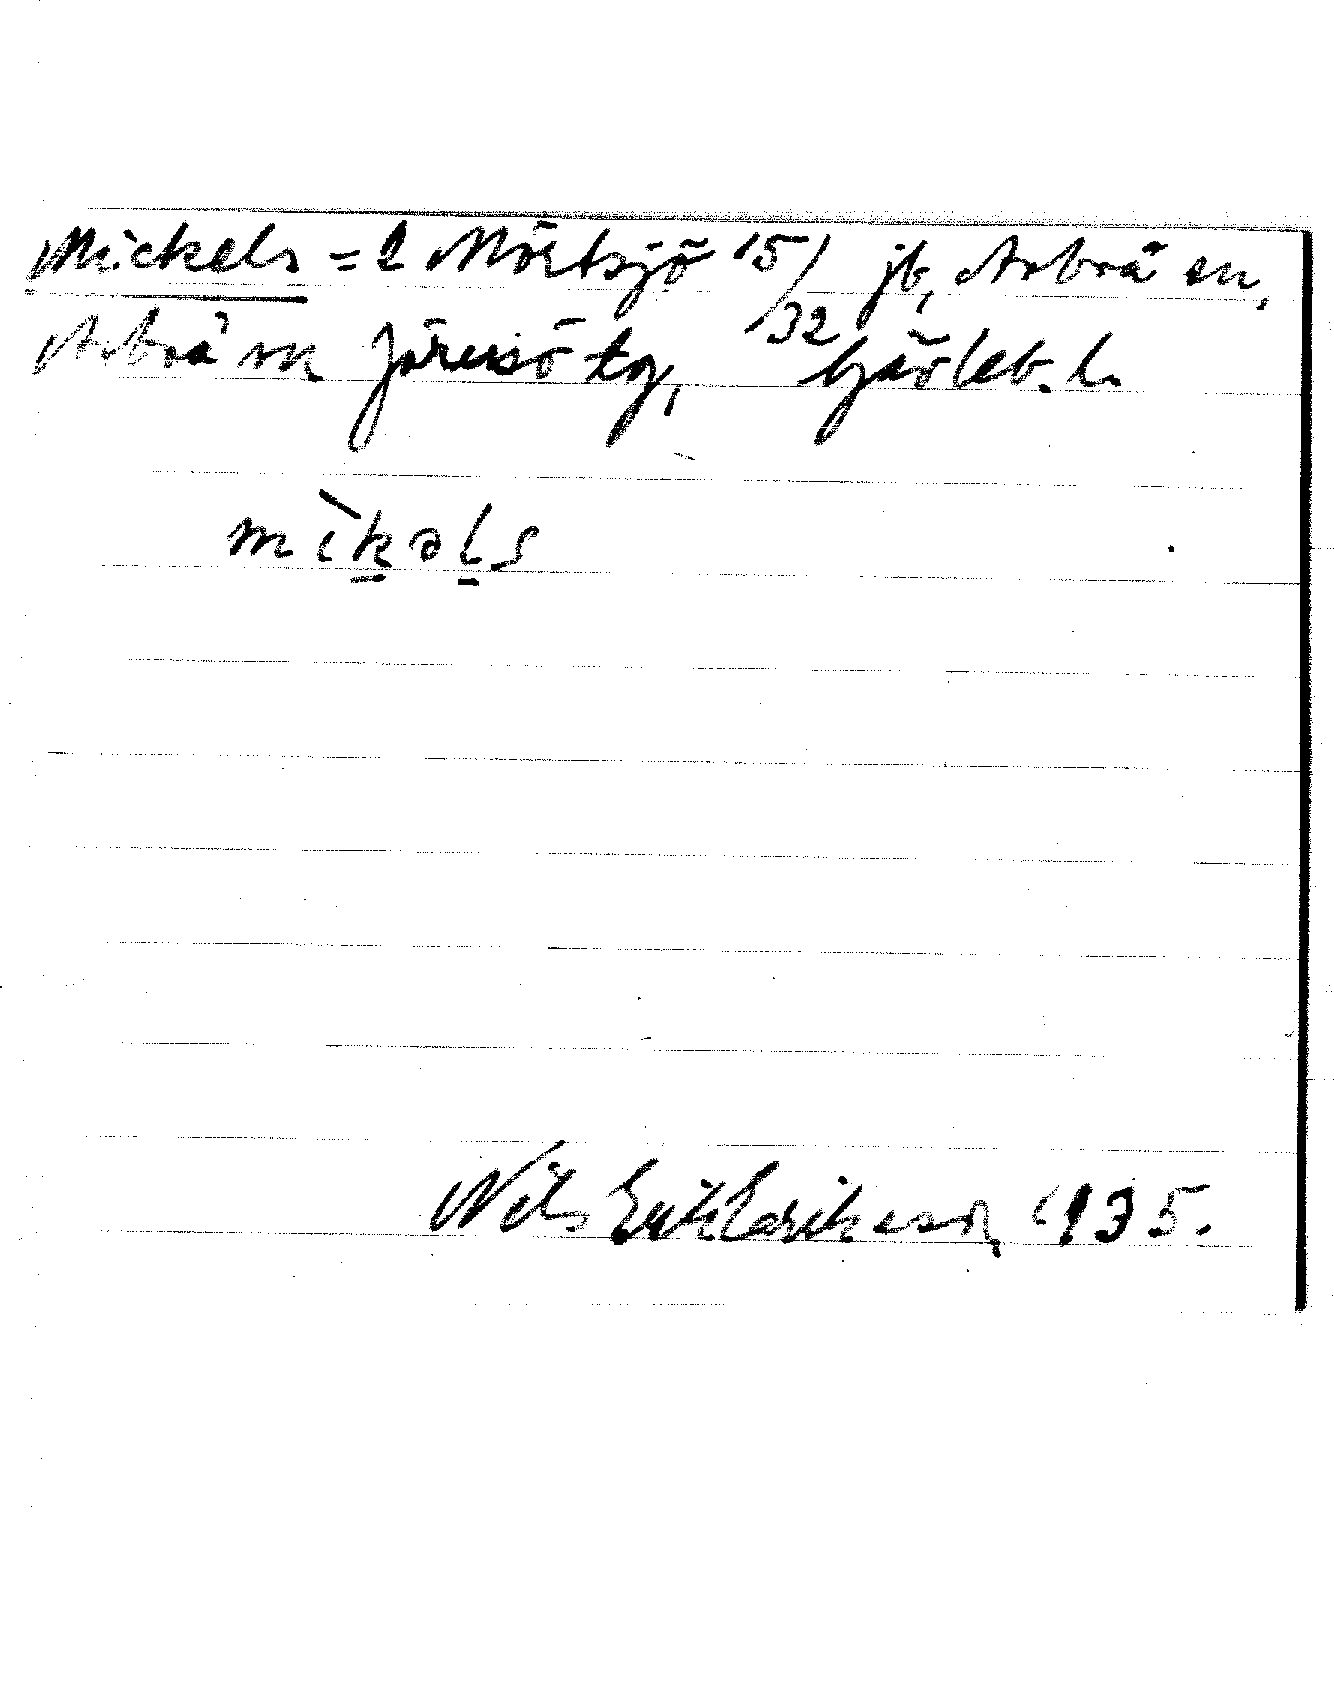 Mickels = 2 Mörtsjö 15/32 jb, Arbrå sn,
Arbrå o. Järvsö tg, Gävleb. l.
mìkəls
Nils Erik Eriksson, 1935.